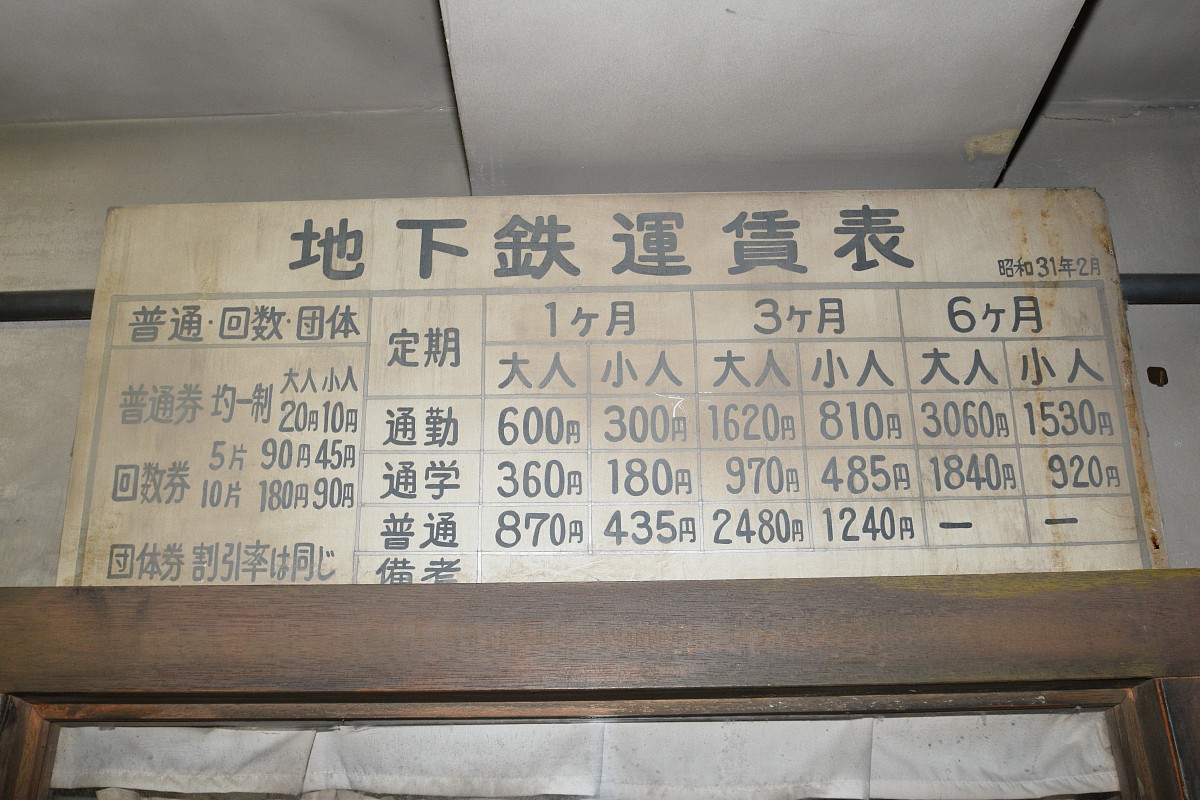 地下鉄運賃表
昭和31年2月
普通・回数・団体 定期 1ヶ月 3ヶ月 6ヶ月
大人 小人 大人 小人 大人 小人
大人 小人
普通券 均一制 20円 10円
回数券 5片 90円 45円
10片 180円 90円
団体券 割引率は同じ
通勤 600円 300円 1620円 810円 3060円 1530円
通学 360円 180円 970円 485円 1840円 920円
普通 870円 435円 2480円 1240円 ー ー
備考